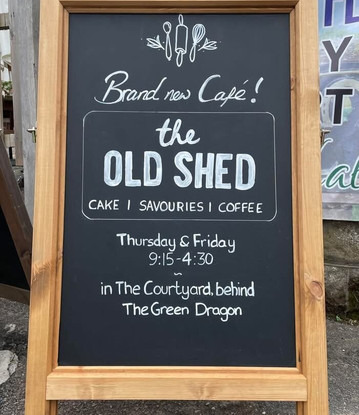 Brand new Café!
the
OLD SHED
CAKE | SAVOURIES | COFFEE
Thursday & Friday
9:15-4:30
~
in The Courtyard, behind
The Green Dragon